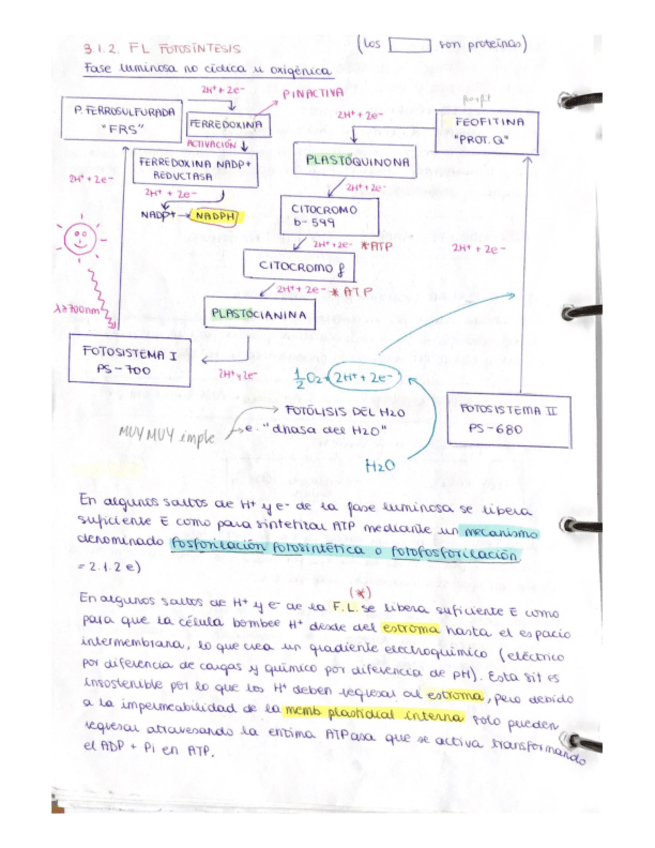 3.1.2. FL FOTOSÍNTESIS
(Los son proteínas)
Fase luminosa no cíclica u oxigénica
2H+ + 2e-
P INACTIVA
P. FERROSULFURADA
"FRS"
FERREDOXINA
2H+ + 2e-
FEOFITINA
"PROT. Q"
ACTIVACIÓN
FERREDOXINA NADP+
REDUCTASA
PLASTOQUINONA
2H+ + 2e-
2H+ + 2e-
2H+ + 2e-
NADP+ → NADPH
CITOCROMO
b-599
2H+ + 2e- *ATP
2H+ + 2e-
CITOCROMO f
2H+ + 2e- * ATP
λ≥700nm
PLASTOCIANINA
FOTOSISTEMA I
PS-700
2H+ y 2e-
1/2 O2 + 2H+ + 2e-
FOTÓLISIS DEL H2O
FOTOSISTEMA II
PS-680
MUY MUY imple
e. "dhasa del H2O"
H2O
En algunos saltos de H+ y e- de la fase luminosa se libera
suficiente E como para sintetizar ATP mediante un mecanismo
denominado fosforilación fotosintética o fotofosforilación
= 2.1.2 e)
(*)
En algunos saltos de H+ y e- de la F.L. se libera suficiente E como
para que la célula bombee H+ desde del estroma hasta el espacio
intermembrana, lo que crea un gradiente electroquímico (eléctrico
por diferencia de cargas y químico por diferencia de pH). Esta sit es
insostenible por lo que los H+ deben regresar al estroma, pero debido
a la impermeabilidad de la memb plastidial interna solo pueden
regresar atravesando la enzima ATPasa que se activa transformando
el ADP + Pi en ATP.